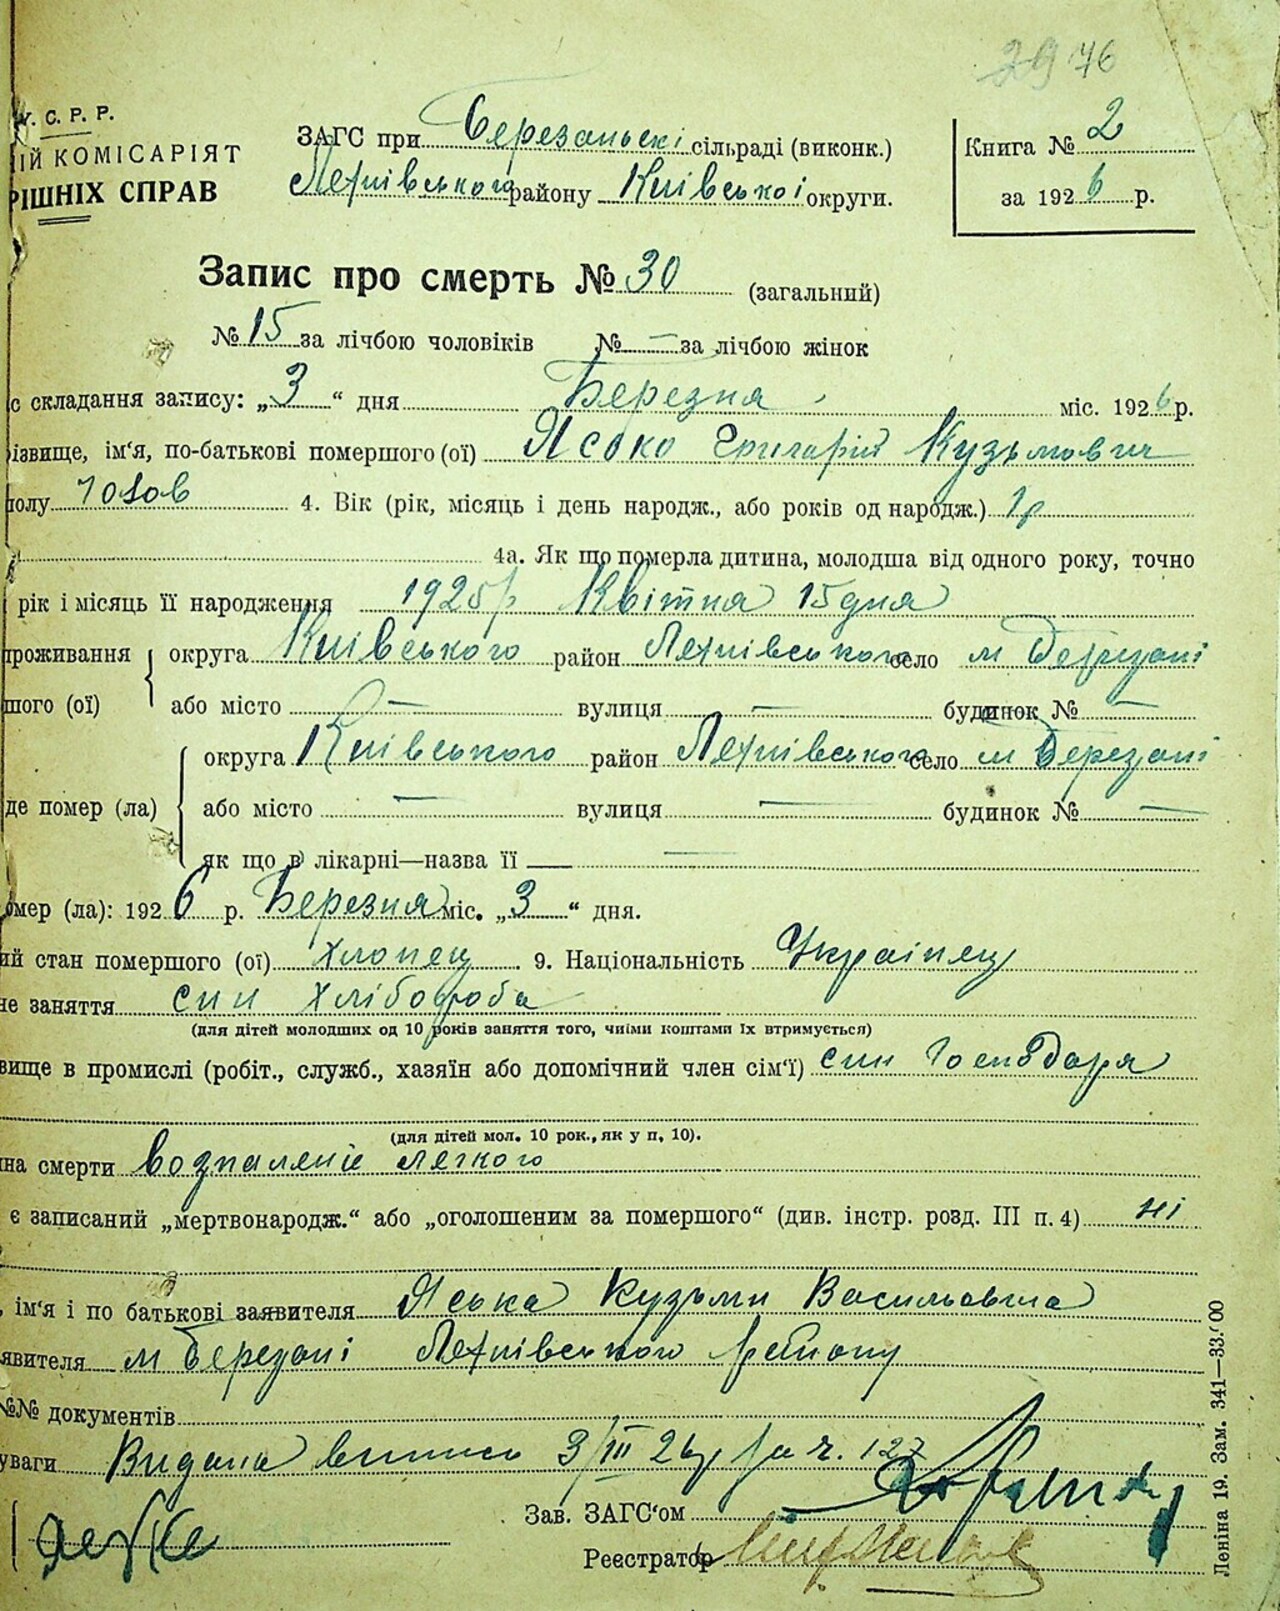 2976
У. С. Р. Р.
ІЙ КОМІСАРІЯТ
РІШНІХ СПРАВ
ЗАГС при Березаньскі сільраді (виконк.)
району Київської округи.
Книга № 2
за 1926 р.
Запис про смерть № 30 (загальний)
№ 15 за лічбою чоловіків № — за лічбою жінок
с складання запису: „3“ дня Березня міс. 1926 р.
різвище, ім'я, по-батькові помершого (ої) Ясько Григорій Кузьмович
полу чолов 4. Вік (рік, місяць і день народж., або років од народж.) 1р
4а. Як що померла дитина, молодша від одного року, точно
рік і місяць її народження 1925р Квітня 15 дня
проживання округа Київського район село м Березані
шого (ої) або місто — вулиця — будинок № —
округа Київського район село м Березані
де помер (ла) або місто — вулиця — будинок № —
як що в лікарні—назва її —
омер (ла): 1926 р. Березня міс. „3“ дня.
ий стан помершого (ої) хлопец 9. Національність Українец
не заняття син хлібороба
(для дітей молодших од 10 років заняття того, чиїми коштами їх втримується)
вище в промислі (робіт., служб., хазяїн або допомічний член сім'ї) син Господаря
(для дітей мол. 10 рок., як у п. 10).
на смерти возпаленіе легкого
є записаний „мертвонародж.“ або „оголошеним за помершого“ (див. інстр. розд. III п. 4) ні
, ім'я і по батькові заявителя Яська Кузьми Васильовича
явителя м Березані району
№№ документів
уваги Видана випись 3/III 26р за ч. 127
Зав. ЗАГС'ом
Реєстратор
Леніна 19. Зам. 341—33.000